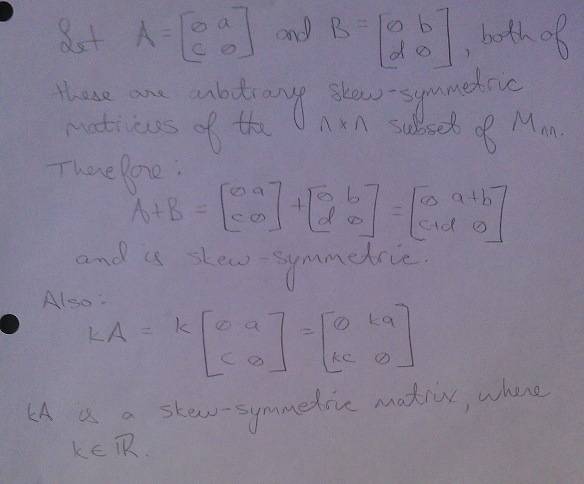 Let A = [0 a; c 0] and B = [0 b; d 0], both of
these are arbitrary skew-symmetric
matricies of the n×n subset of Mnn.
Therefore:
A+B = [0 a; c 0] + [0 b; d 0] = [0 a+b; c+d 0]
and is skew-symmetric.
Also:
kA = k [0 a; c 0] = [0 ka; kc 0]
kA is a skew-symmetric matrix, where
k ∈ ℝ.